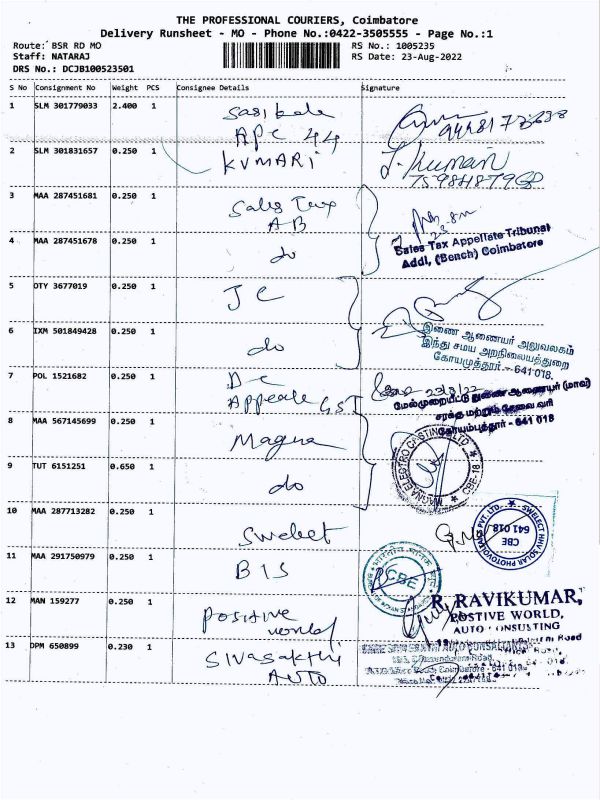 THE PROFESSIONAL COURIERS, Coimbatore
Delivery Runsheet - MO - Phone No.:0422-3505555 - Page No.:1
Route: BSR RD MO
RS No.: 1005235
Staff: NATARAJ
RS Date: 23-Aug-2022
DRS No.: DCJB100523501
S No Consignment No Weight PCS Consignee Details Signature
1 SLM 301779033 2.400 1 Sasikala
APC 44
2 SLM 301831657 0.250 1 KUMARI
3 MAA 287451681 0.250 1 Sales Tax
AB
Sales Tax Appellate Tribunal
Addl, (Bench) Coimbatore
4 MAA 287451678 0.250 1 do
5 OTY 3677019 0.250 1 JC
இணை ஆணையர் அலுவலகம்
இந்து சமய அறநிலையத்துறை
கோயமுத்தூர் - 641 018.
6 IXM 501849428 0.250 1 do
7 POL 1521682 0.250 1 DC
Appeals GST
23/8/22
மேல்முறையீட்டு துணை ஆணையர் (மாவ)
சரக்கு மற்றும் சேவை வரி
கோயம்புத்தூர் - 641 018
8 MAA 567145699 0.250 1 Magna
MAGNA ELECTRO CASTINGS LTD
CBE-18
9 TUT 6151251 0.650 1 do
10 MAA 287713282 0.250 1 Swelect
SWELECT HHV SOLAR PHOTOVOLTAICS PVT. LTD.
CBE
641 018
11 MAA 291750979 0.250 1 BIS
CBE
12 MAN 159277 0.250 1 Positive
world
R. RAVIKUMAR,
POSTIVE WORLD,
AUTO CONSULTING
13 DPM 650899 0.230 1 Sivasakthi
AUTO